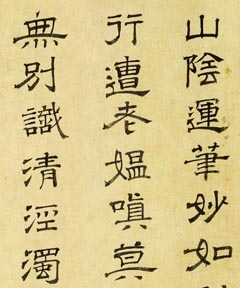 山陰運筆妙如
行遭老媼嗔莫
無別識清涇濁